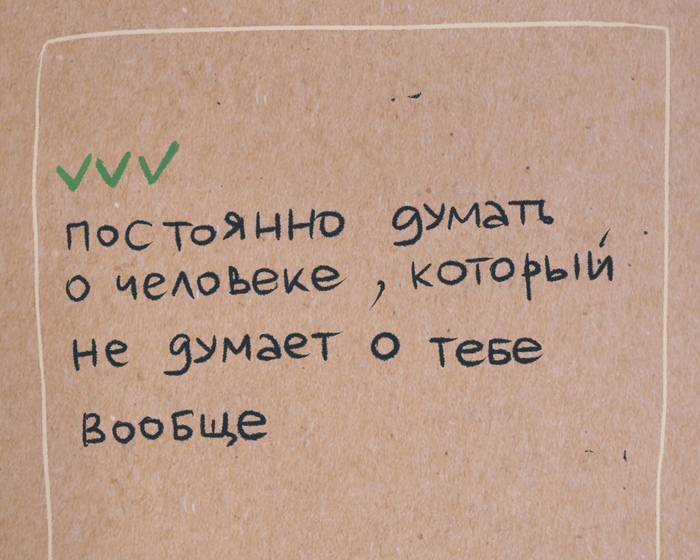 постоянно думать
о человеке, который
не думает о тебе
вообще